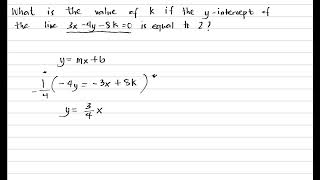 What is the value of k if the y-intercept of
the line 3x-4y-8k=0 is equal to 2?
y = mx+b
-1/4 (-4y = -3x + 8k)
y = 3/4 x